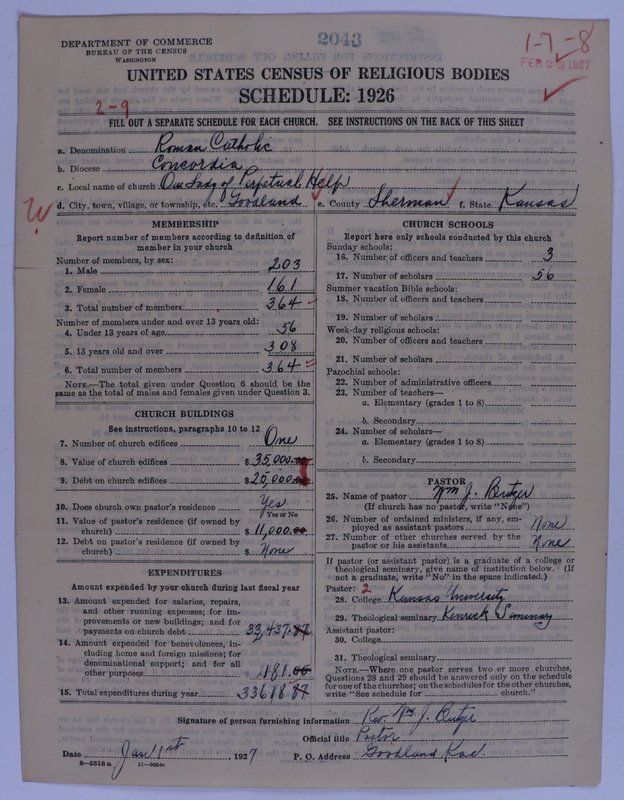 DEPARTMENT OF COMMERCE
BUREAU OF THE CENSUS
WASHINGTON
2043
1-7-8
FEB 23 1927
UNITED STATES CENSUS OF RELIGIOUS BODIES
SCHEDULE: 1926
2-9
FILL OUT A SEPARATE SCHEDULE FOR EACH CHURCH. SEE INSTRUCTIONS ON THE BACK OF THIS SHEET
a. Denomination Roman Catholic
b. Diocese Concordia
c. Local name of church Our Lady of Perpetual Help
d. City, town, village, or township, etc. Goodland e. County Sherman f. State Kansas
MEMBERSHIP
Report number of members according to definition of
member in your church
Number of members, by sex:
1. Male 203
2. Female 161
3. Total number of members 364
Number of members under and over 13 years old:
4. Under 13 years of age 56
5. 13 years old and over 308
6. Total number of members 364
NOTE.—The total given under Question 6 should be the
same as the total of males and females given under Question 3.
CHURCH BUILDINGS
See instructions, paragraphs 10 to 12
7. Number of church edifices One
8. Value of church edifices $35,000.00
9. Debt on church edifices $25,000.00
10. Does church own pastor's residence Yes
Yes or No
11. Value of pastor's residence (if owned by
church) $11,000.00
12. Debt on pastor's residence (if owned by
church) $None
EXPENDITURES
Amount expended by your church during last fiscal year
13. Amount expended for salaries, repairs,
and other running expenses; for im-
provements or new buildings; and for
payments on church debt 33,437.87
14. Amount expended for benevolences, in-
cluding home and foreign missions; for
denominational support; and for all
other purposes $181.00
15. Total expenditures during year 33618 87
CHURCH SCHOOLS
Report here only schools conducted by this church
Sunday schools:
16. Number of officers and teachers 3
17. Number of scholars 56
Summer vacation Bible schools:
18. Number of officers and teachers
19. Number of scholars
Week-day religious schools:
20. Number of officers and teachers
21. Number of scholars
Parochial schools:
22. Number of administrative officers
23. Number of teachers—
a. Elementary (grades 1 to 8)
b. Secondary
24. Number of scholars—
a. Elementary (grades 1 to 8)
b. Secondary
PASTOR
25. Name of pastor Wm J. Butzer
(If church has no pastor, write "None")
26. Number of ordained ministers, if any, em-
ployed as assistant pastors None
27. Number of other churches served by the
pastor or his assistants None
If pastor (or assistant pastor) is a graduate of a college or
theological seminary, give name of institution below. (If
not a graduate, write "No" in the space indicated.)
Pastor: 2
28. College Kansas University
29. Theological seminary Kenrick Seminary
Assistant pastor:
30. College
31. Theological seminary
NOTE.—Where one pastor serves two or more churches,
Questions 28 and 29 should be answered only on the schedule
for one of the churches; on the schedules for the other churches,
write "See schedule for church."
Signature of person furnishing information Rev. Wm J. Butzer
Official title Pastor
Date Jan 1st, 1927 P. O. Address Goodland Kas.
8-5518 a